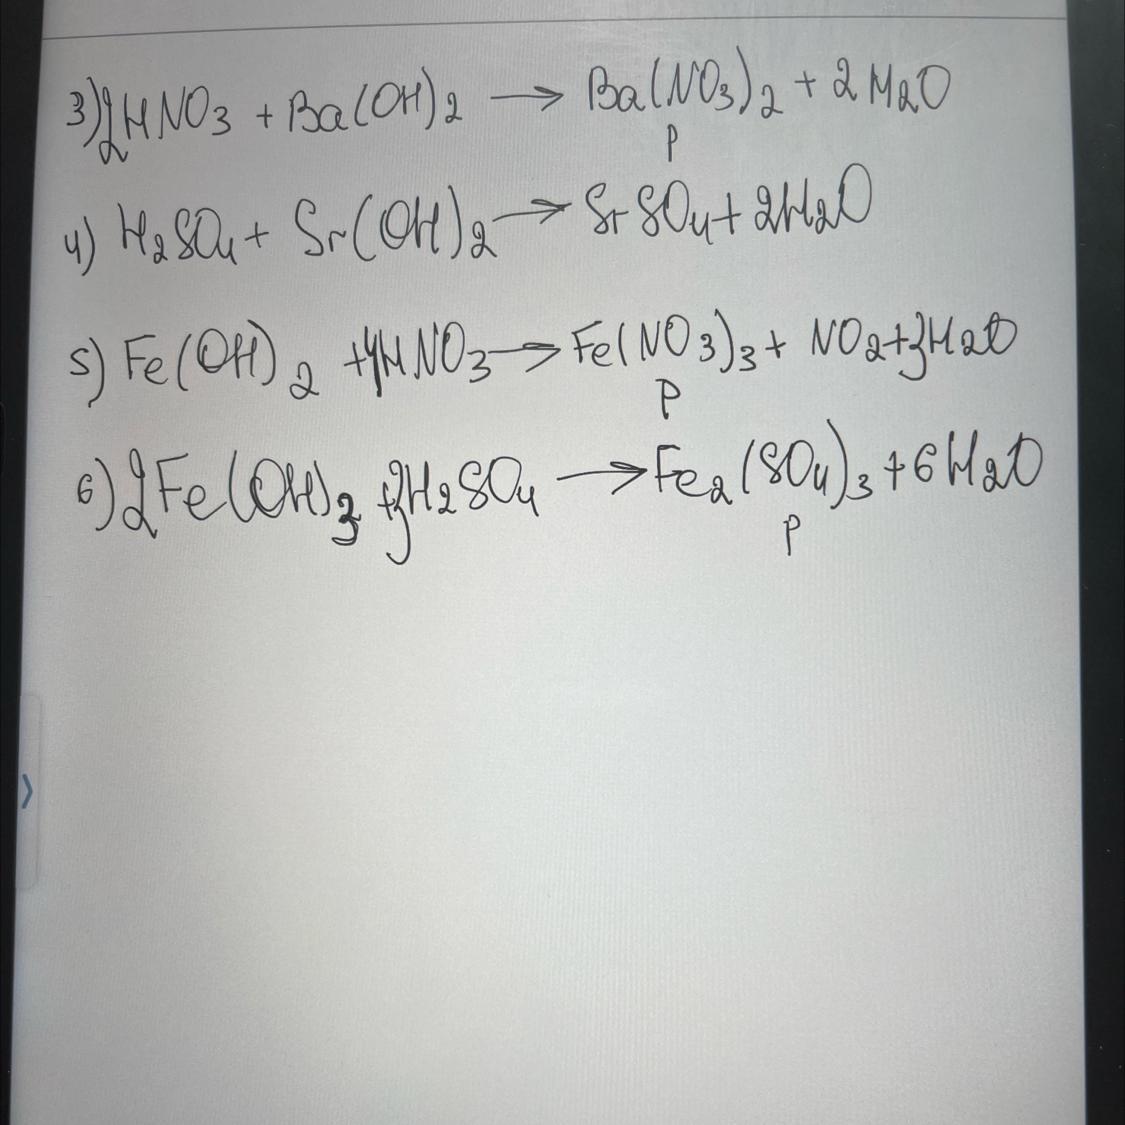 3) 2HNO3 + Ba(OH)2 → Ba(NO3)2 + 2H2O
р
4) H2SO4 + Sr(OH)2 → SrSO4 + 2H2O
5) Fe(OH)2 + 4HNO3 → Fe(NO3)3 + NO2 + 3H2O
р
6) 2Fe(OH)3 + 3H2SO4 → Fe2(SO4)3 + 6H2O
р